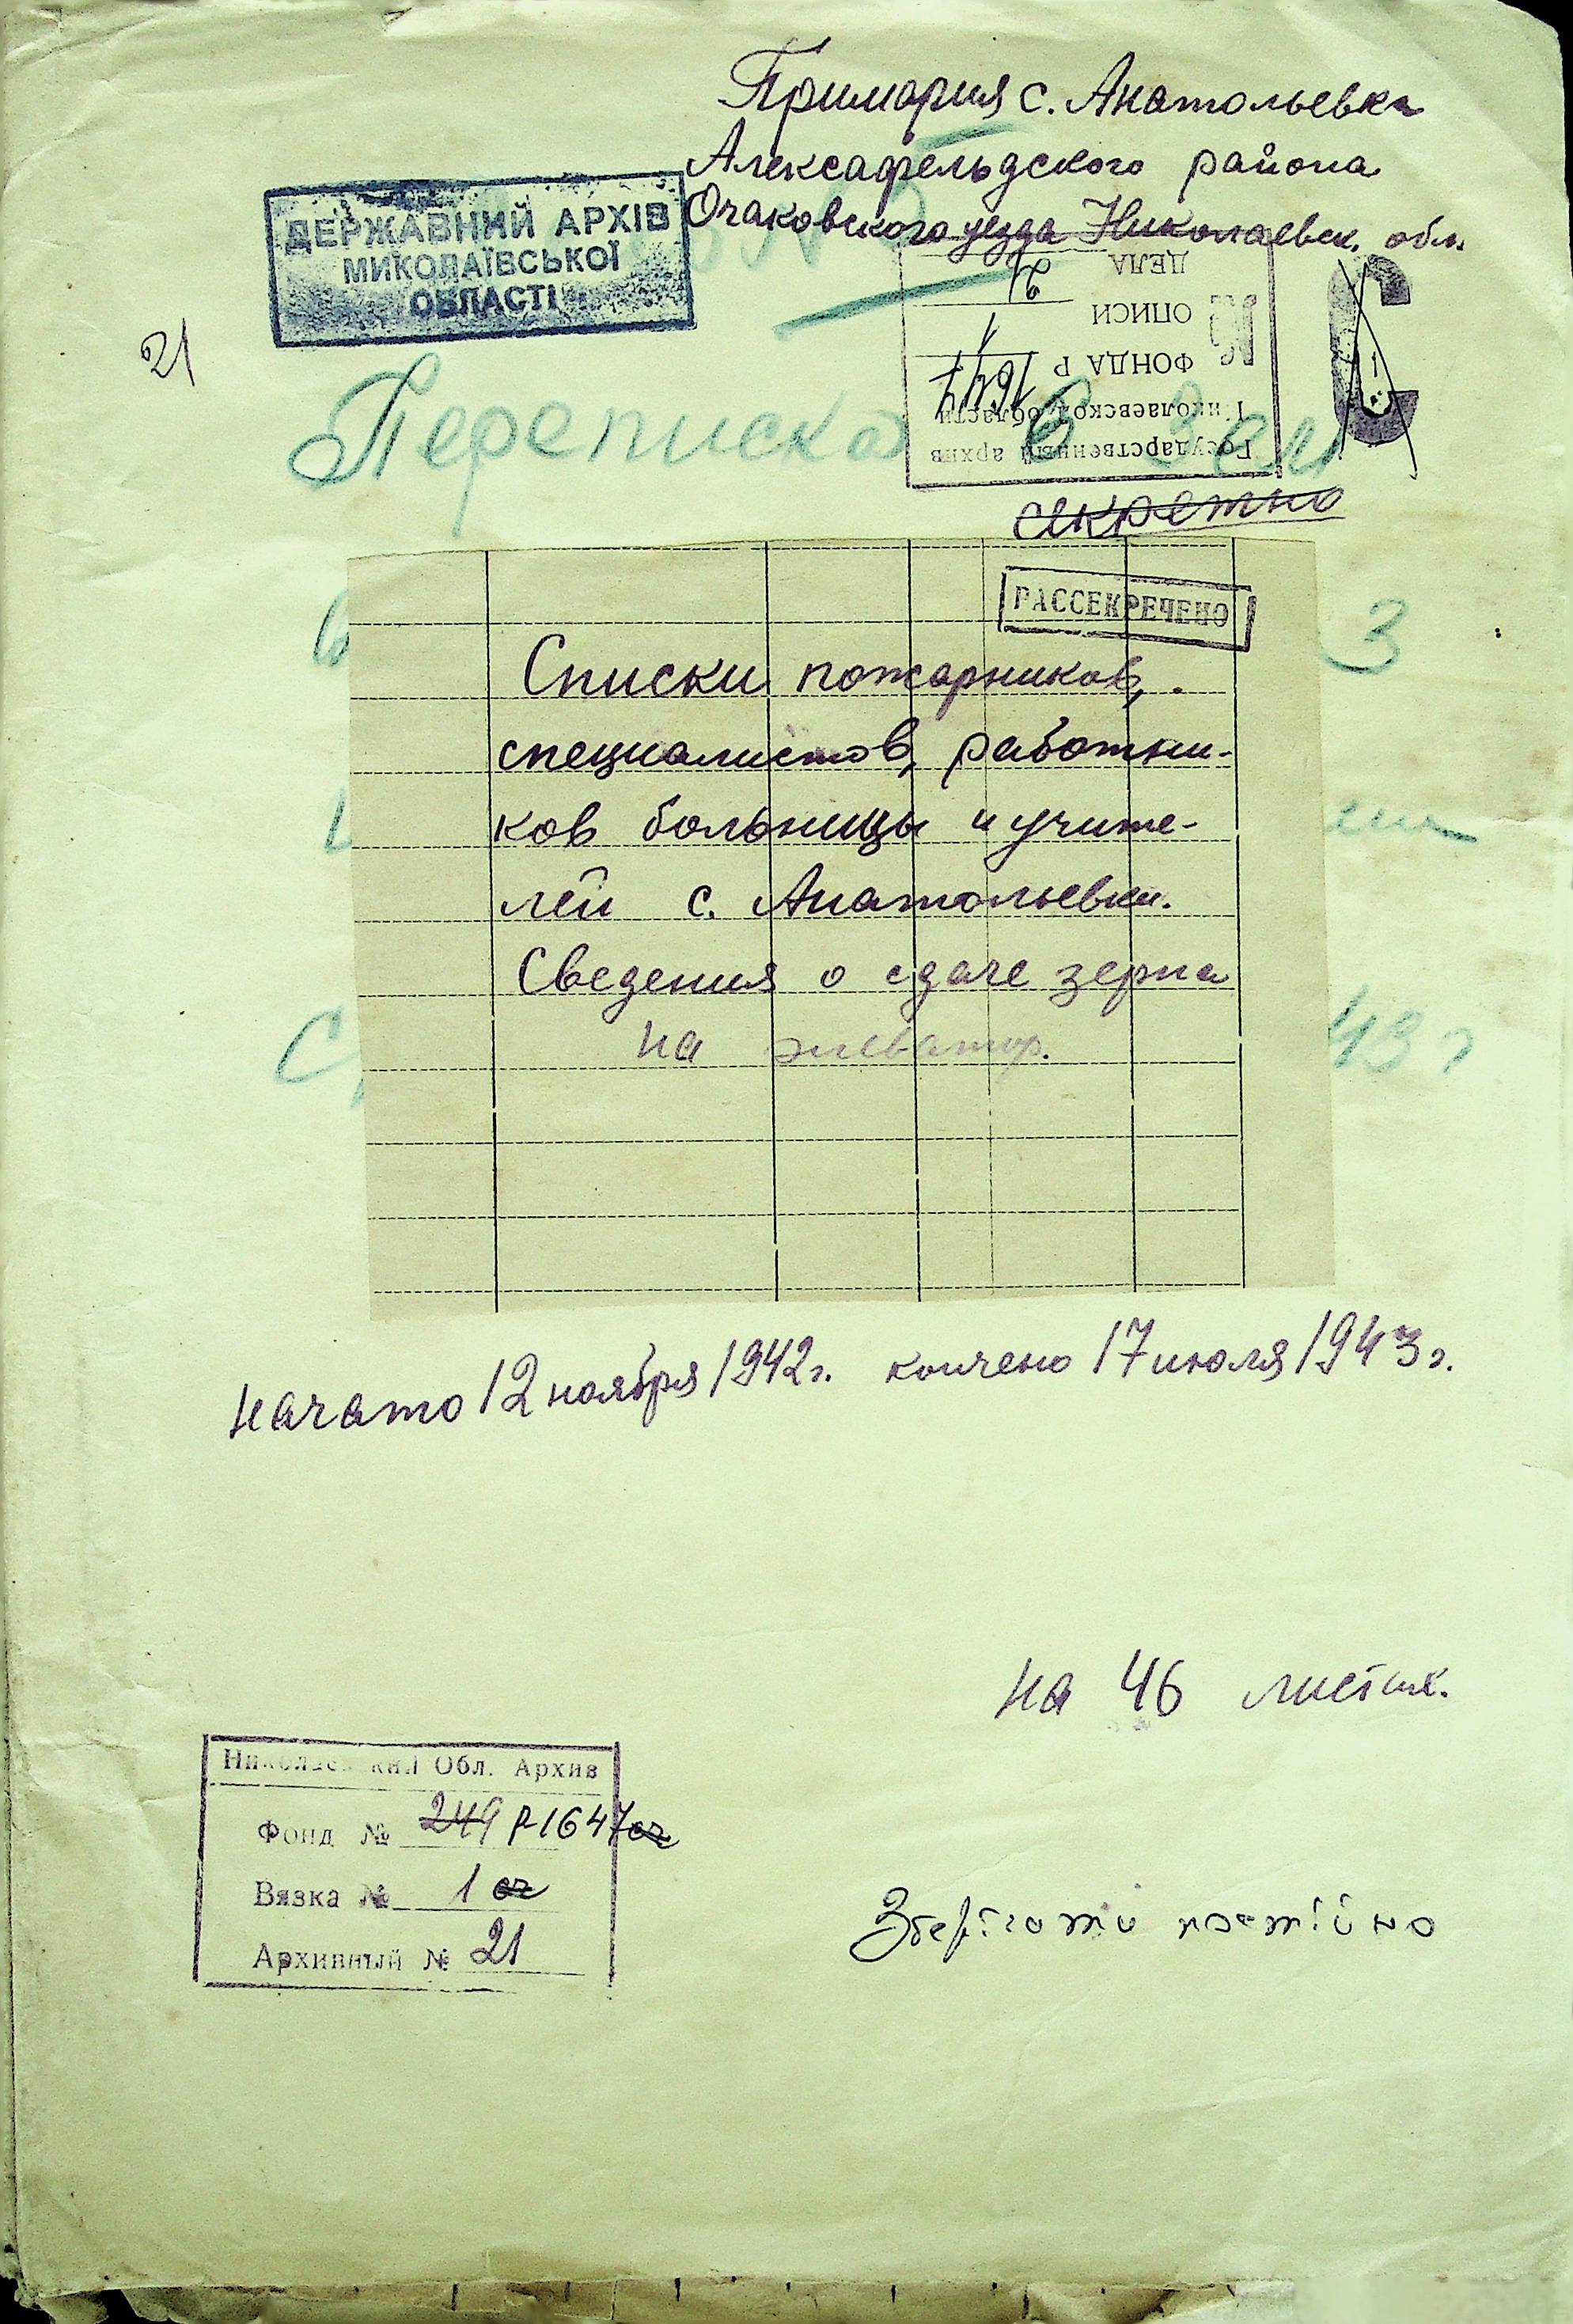 Примария с. Анатольевка
Алексафельдского района
Очаковского уезда Николаевск. обл.
ДЕРЖАВНИЙ АРХІВ
МИКОЛАЇВСЬКОЇ
ОБЛАСТІ
21
Государственный архив
Николаевской области
ФОНДА Р 1647
ОПИСИ 1
ДЕЛА 21
Переписка
секретно
РАССЕКРЕЧЕНО
3
Списки пожарников,
специалистов, работни-
ков больницы и учите-
лей с. Анатольевки.
Сведения о сдаче зерна
на элеватор.
43 г
начато 12 ноября 1942г. кончено 17 июля 1943г.
на 46 листах.
Николаевский Обл. Архив
Фонд № 249 Р-1647
Вязка № 1
Архивный № 21
Зберігати постійно